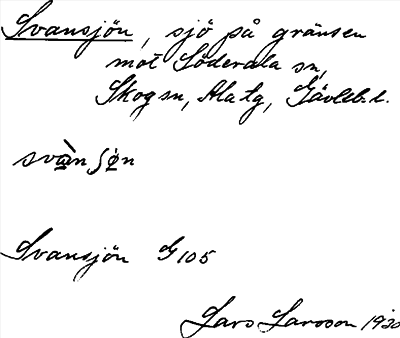 Svansjön, sjö på gränsen
mot Söderala sn,
Skog sn, Ala tg, Gävleb. l.
svànʃø̀n
Svansjön G 105
Lars Larsson 1930